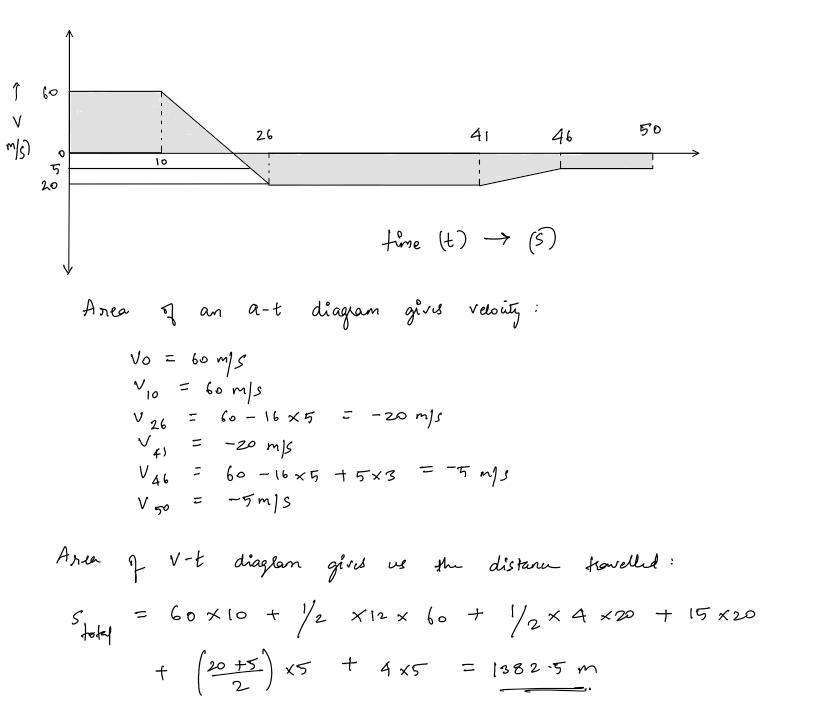 ↑
V
m/s)
60
0
5
20
10
26
41
46
50
time (t) → (s)
Area of an a-t diagram gives velocity :
V0 = 60 m/s
V10 = 60 m/s
V26 = 60 - 16 × 5 = -20 m/s
V41 = -20 m/s
V46 = 60 - 16 × 5 + 5 × 3 = -5 m/s
V50 = -5 m/s
Area of v-t diagram gives us the distance travelled :
S total = 60 × 10 + 1/2 × 12 × 60 + 1/2 × 4 × 20 + 15 × 20
+ (20 + 5 / 2) × 5 + 4 × 5 = 1382.5 m